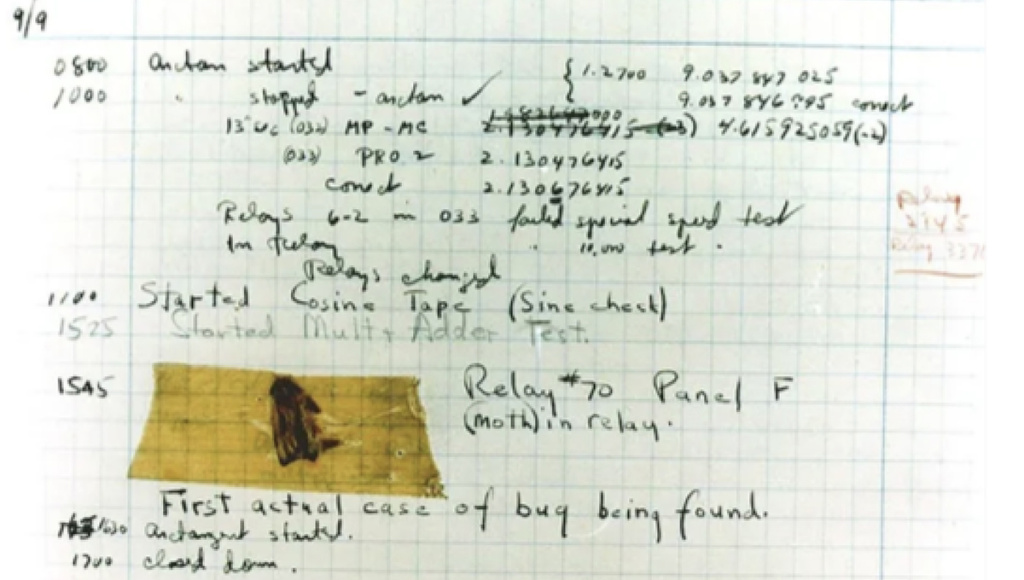 9/9
0800 antan started { 1.2700 9.037 847 025
1000 " stopped - antan ✓ 9.037 846 995 correct
13"uc (032) MP - MC 2.130476415 (-3) 4.615925059(-2)
(033) PRO 2 2.130476415
correct 2.130676415
Relays 6-2 in 033 failed special speed test
in relay " 10,000 test .
Relays changed
1100 Started Cosine Tape (Sine check)
1525 Started Mult + Adder Test.
1545 Relay #70 Panel F
(moth) in relay.
First actual case of bug being found.
1630 antangent started.
1700 closed down.
Relay
2145
Relay 3370